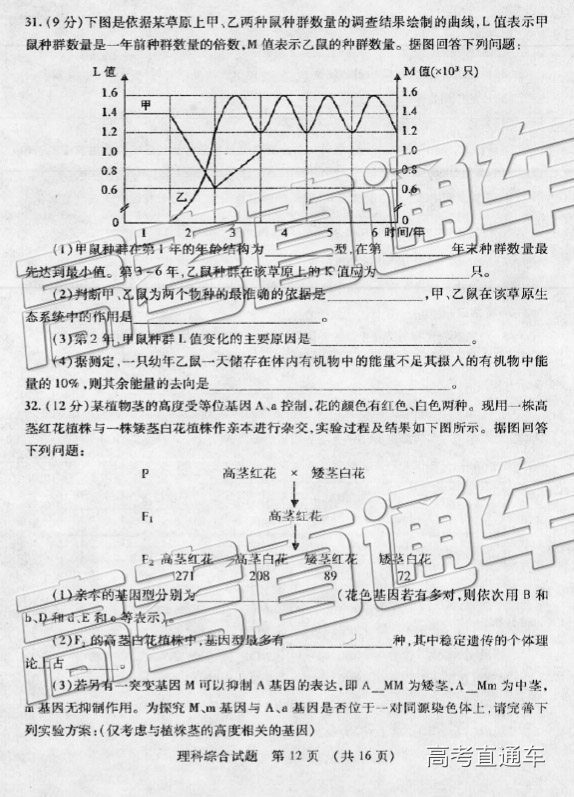 31.(9分)下图是依据某草原上甲、乙两种鼠种群数量的调查结果绘制的曲线,L值表示甲
鼠种群数量是一年前种群数量的倍数,M值表示乙鼠的种群数量。据图回答下列问题:
L值 M值(×10³只)
1.6 1.6
1.4 甲 1.4
1.2 1.2
1.0 1.0
0.8 0.8
0.6 乙 0.6
0 0
1 2 3 4 5 6 时间/年
(1)甲鼠种群在第1年的年龄结构为______型,在第______年末种群数量最
先达到最小值。第3-6年,乙鼠种群在该草原上的K值应为______只。
(2)判断甲、乙鼠为两个物种的最准确的依据是______,甲、乙鼠在该草原生
态系统中的作用是______。
(3)第2年,甲鼠种群L值变化的主要原因是______。
(4)据测定,一只幼年乙鼠一天储存在体内有机物中的能量不足其摄入的有机物中能
量的10%,则其余能量的去向是______。
32.(12分)某植物茎的高度受等位基因A、a控制,花的颜色有红色、白色两种。现用一株高
茎红花植株与一株矮茎白花植株作亲本进行杂交,实验过程及结果如下图所示。据图回答
下列问题:
P 高茎红花 × 矮茎白花
F₁ 高茎红花
F₂ 高茎红花 高茎白花 矮茎红花 矮茎白花
271 208 89 72
(1)亲本的基因型分别为______(花色基因若有多对,则依次用B和
b、D和d、E和e等表示)。
(2)F₂的高茎白花植株中,基因型最多有______种,其中稳定遗传的个体理
论上占______。
(3)若另有一突变基因M可以抑制A基因的表达,即A_MM为矮茎,A_Mm为中茎,
m基因无抑制作用。为探究M、m基因与A、a基因是否位于一对同源染色体上,请完善下
列实验方案:(仅考虑与植株茎的高度相关的基因)
理科综合试题 第12页 (共16页)
高考直通车
高考直通车
高考直通车
高考直通车